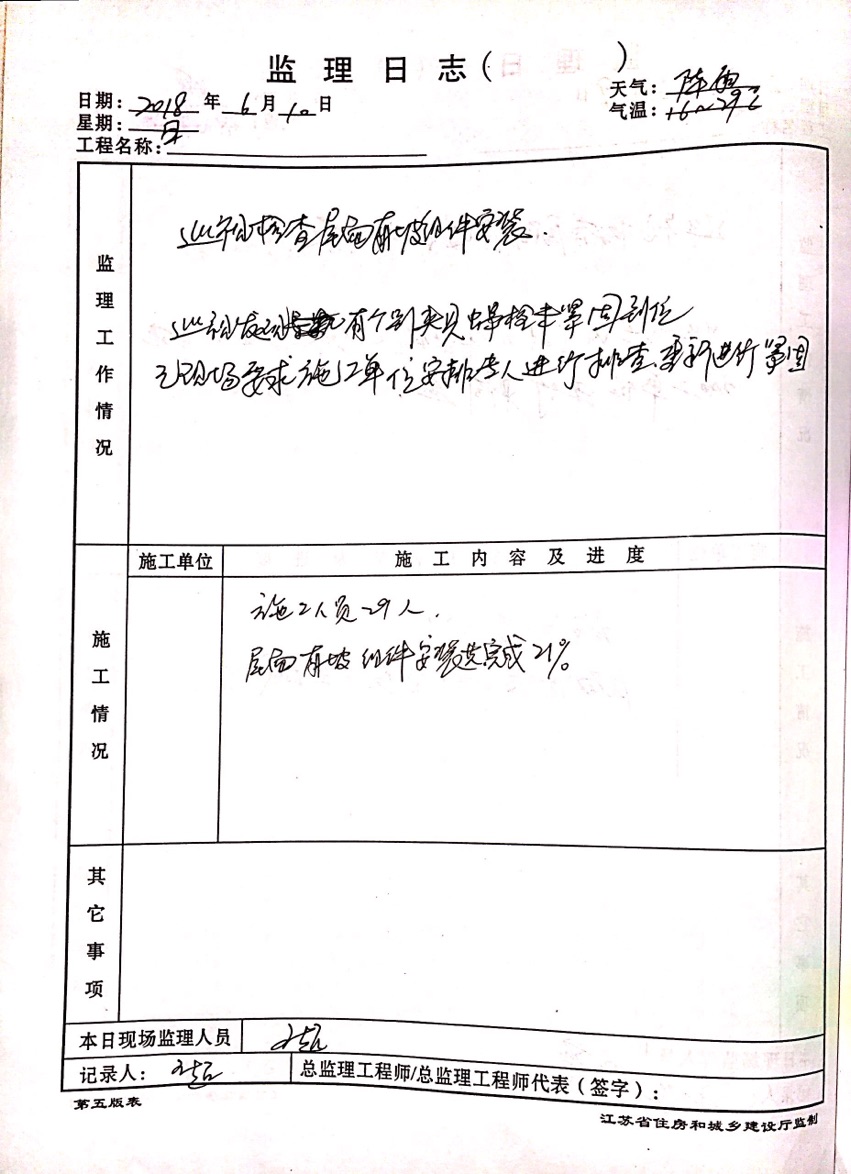 监理日志( )
日期: 2018 年 6 月 10 日
天气: 阵雨
星期: 日
气温: 16~29℃
工程名称:
监理工作情况
巡视检查屋面南坡组件安装.
巡视发现 有个别夹具螺栓未紧固到位
已现场要求施工单位安排专人进行排查重新进行紧固
施工单位 施工内容及进度
施工情况
施工人员29人.
屋面南坡组件安装总完成21%
其它事项
本日现场监理人员
记录人:
总监理工程师/总监理工程师代表(签字):
第五版表
江苏省住房和城乡建设厅监制